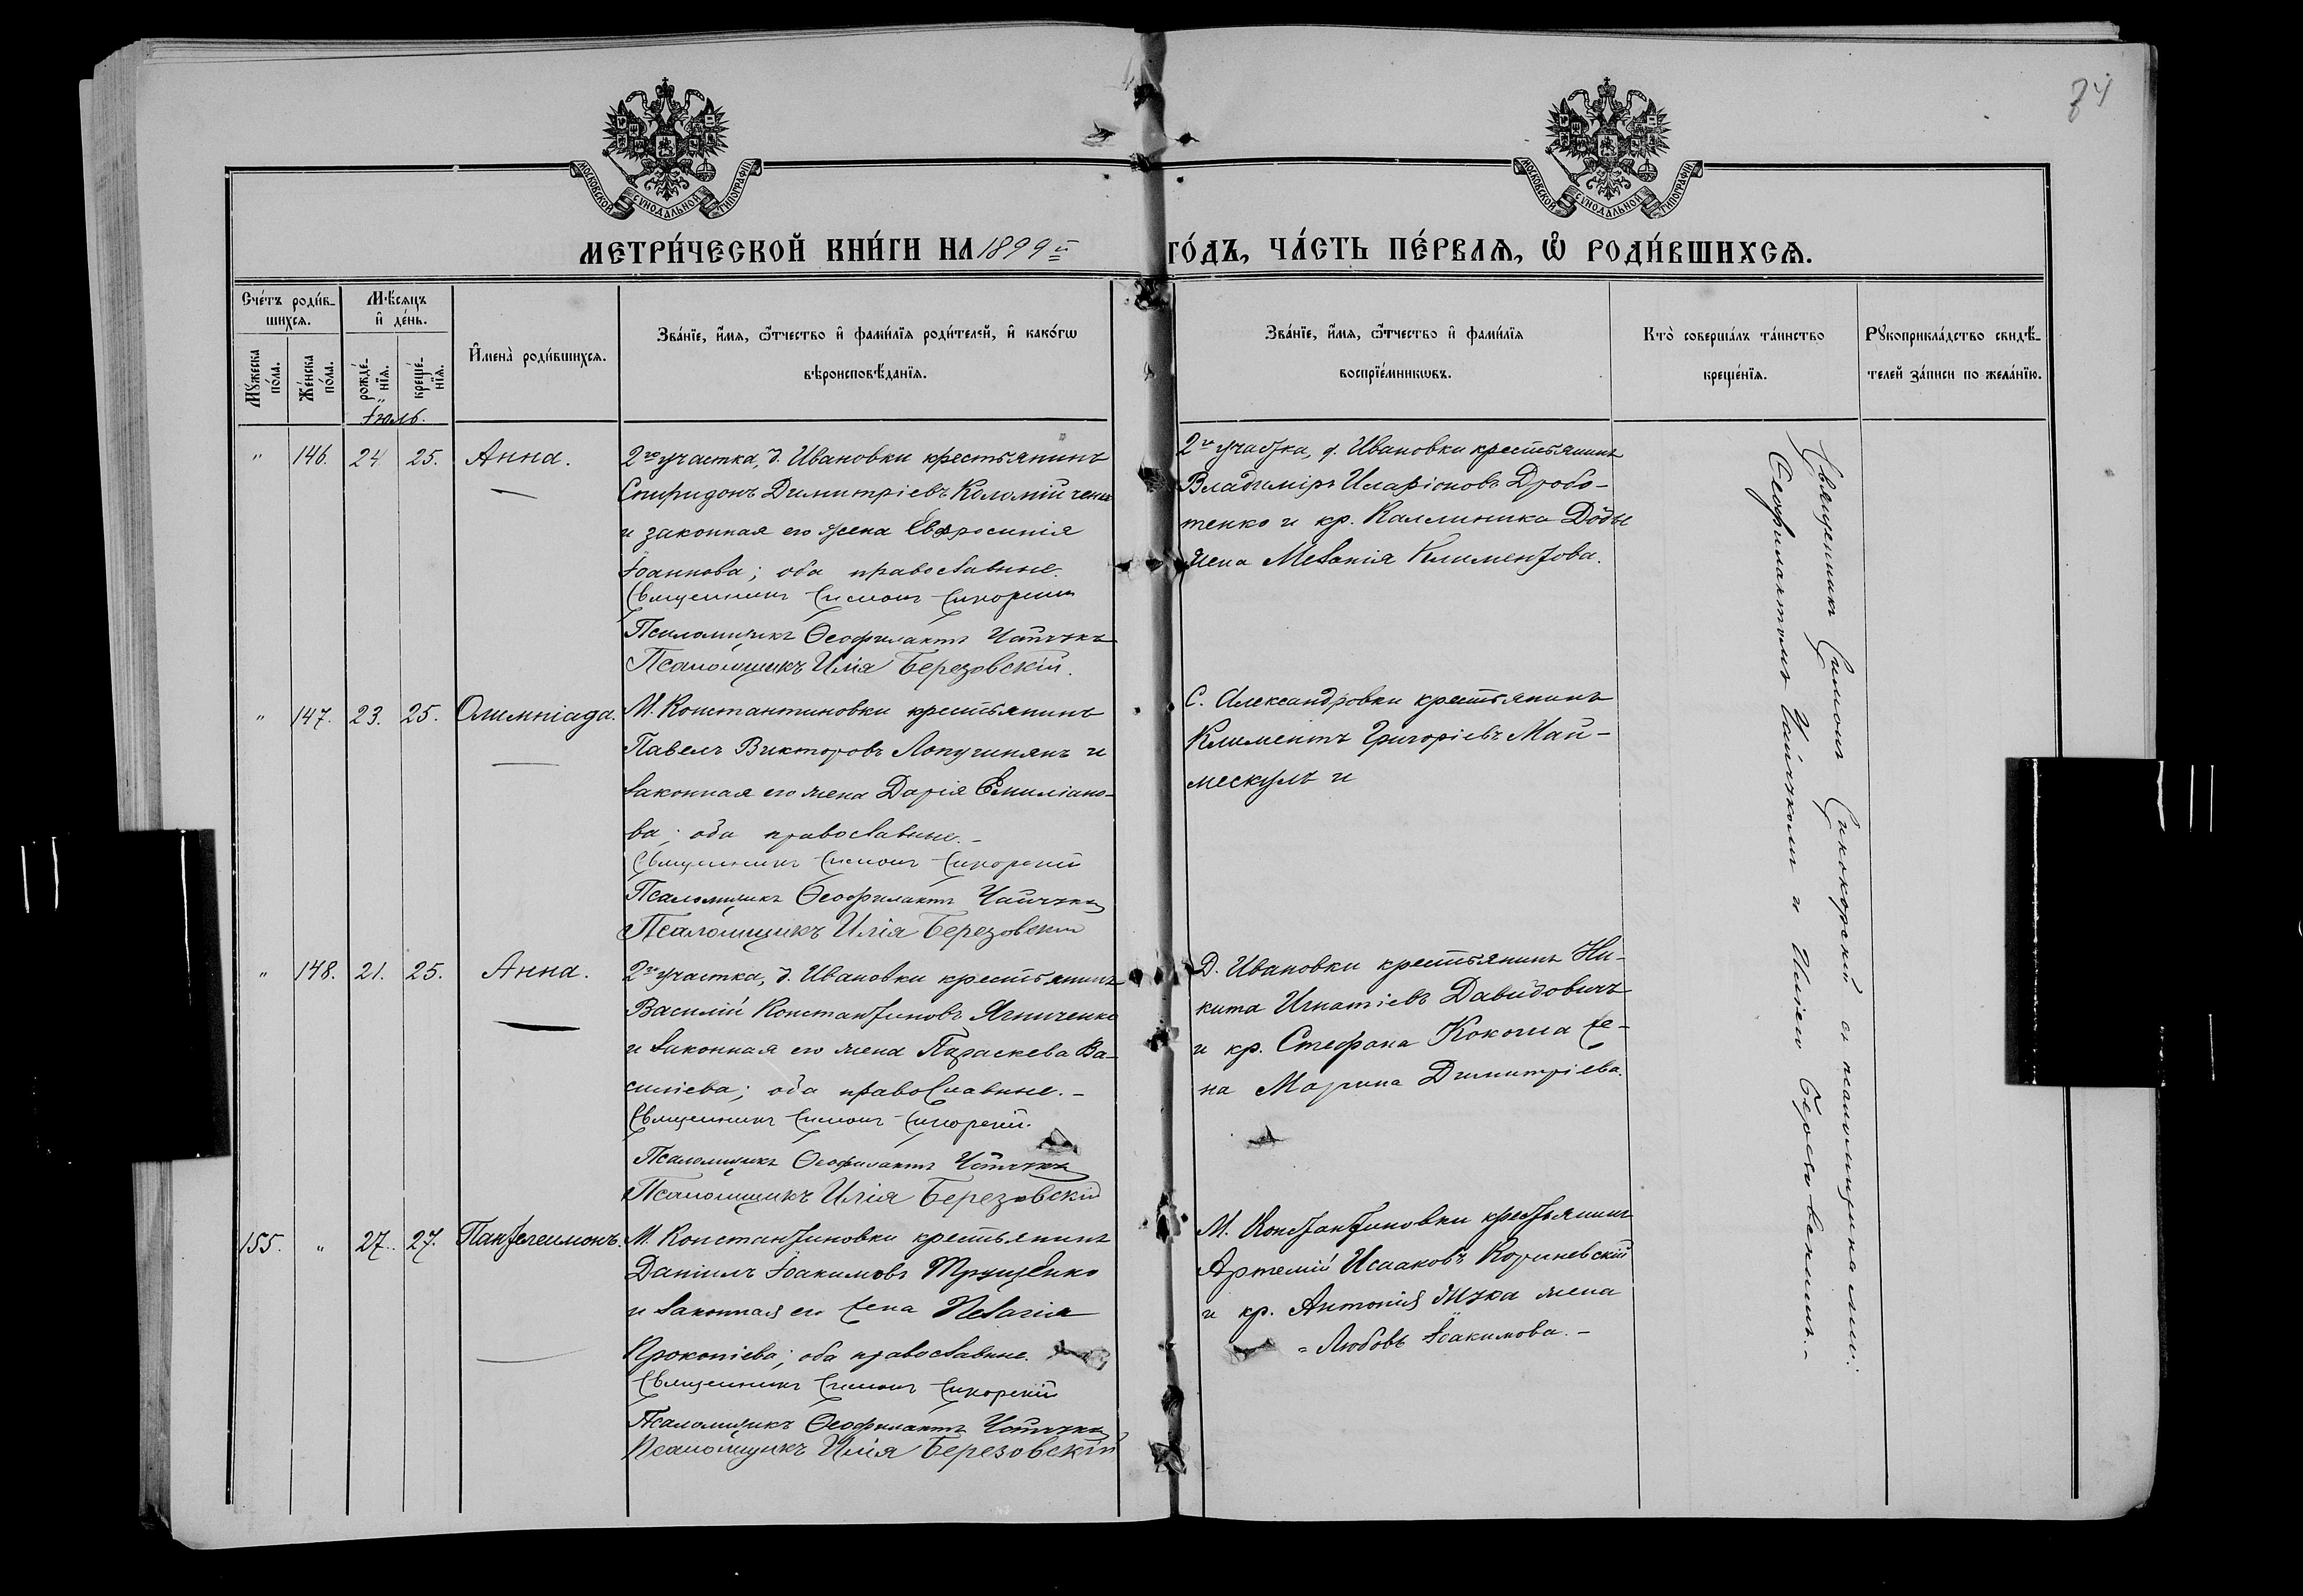 84
МОСКОВСКОЙ СУНОДАЛЬНОЙ ТИПОГРАФІИ
МОСКОВСКОЙ СУНОДАЛЬНОЙ ТИПОГРАФІИ
МЕТРИ́ЧЕСКОЙ КНИ́ГИ НА 1899й ГО́ДЪ, ЧА́СТЬ ПЕ́РВАѦ, Ѽ РОДИ́ВШИХСѦ.
Сче́тъ роди́в-
шихсѧ.
Мꙋжеска по́ла.
Же́нска по́ла.
Мѣ́сѧцъ
и҆ де́нь.
рожде́-
нїѧ.
креще́-
нїѧ.
И҆мена̀ роди́вшихсѧ.
Зва́нїе, и҆́мѧ, ѻ҆́тчество и҆ фами́лїѧ роди́телей, и҆ како́гѡ
вѣроисповѣ́данїѧ.
Зва́нїе, и҆́мѧ, ѻ҆́тчество и҆ фами́лїѧ
воспрїе́мникѡвъ.
Кто̀ соверша́лъ та́инство
креще́нїѧ.
Рꙋкоприкла́дство свидѣ́-
телей за́писи по жела́нїю.
Іюль.
" 146. 24 25. Анна.
2го участка, д. Ивановки крестьянинъ
Спиридонъ Димитріевъ
и законная его жена Евфросинія
Іоаннова; оба православные.
Священникъ Симонъ Сикорскій
Псаломщикъ Ѳеофилактъ Чайчукъ
Псаломщикъ Илія Березовскій.
2го участка, д. Ивановки крестьянинъ
Владиміръ Иларіоновъ Дробо-
тенко и кр. Каллиника Доды
жена Меланія Климентова.
" 147. 23. 25. Олимпіада.
М. Константиновки крестьянинъ
Павелъ Викторовъ и
законная его жена Дарія Емиліано-
ва; оба православные.-
Священникъ Симонъ Сикорскій
Псаломщикъ Ѳеофилактъ Чайчукъ
Псаломщикъ Илія Березовскій
С. Александровки крестьянинъ
Климентъ Григоріевъ Май-
мескулъ и
" 148. 21. 25. Анна.
2го участка, д. Ивановки крестьянинъ
Василій Константиновъ Ягниченко
и законная его жена Параскева Ва-
силіева; оба православные.-
Священникъ Симонъ Сикорскій.
Псаломщикъ Ѳеофилактъ Чайчукъ
Псаломщикъ Илія Березовскій
Д. Ивановки крестьянинъ Ни-
кита Игнатіевъ Давидовичъ
и кр. Стефана же-
на Марина Димитріева.
155. " 27. 27. Пантелеимонъ.
М. Константиновки крестьянинъ
Даніилъ Іоакимовъ Трущенко
и законная его жена Пелагія
Прокопіева; оба православные.
Священникъ Симонъ Сикорскій
Псаломщикъ Ѳеофилактъ Чайчукъ
Псаломщикъ Илія Березовскій
М. Константиновки крестьянинъ
Артемій Исааковъ Кориневскій
и кр. Антонія жена
= Любовь Іоакимова.-
Священникъ Симонъ Сикорскій съ псаломщиками:
Ѳеофилактомъ Чайчукомъ и Иліею Березовскимъ.-